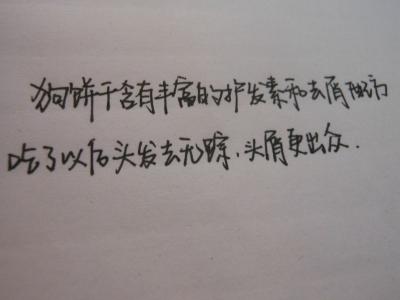 狗饼干含有丰富的护发素和去屑配方
吃了以后头发去无踪，头屑更出众.